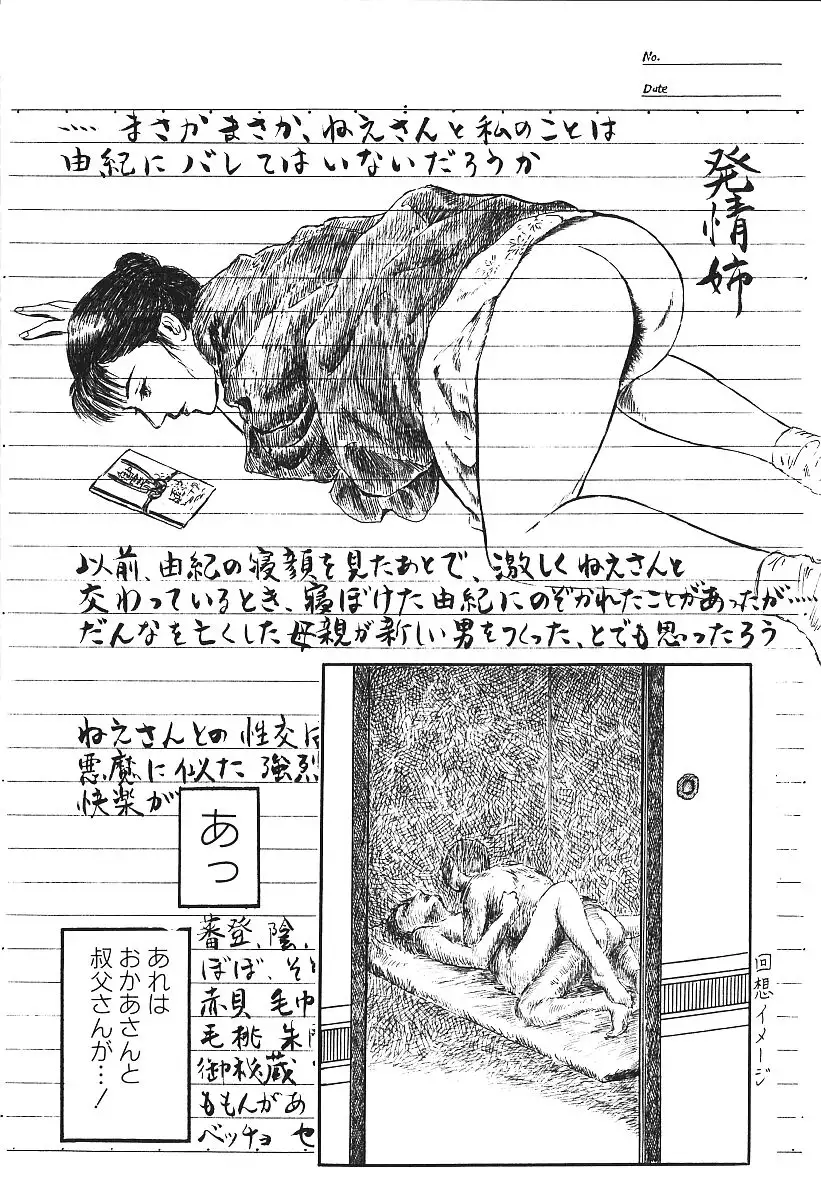 No.
Date
‥‥ まさかまさか、ねえさんと私のことは
由紀にバレてはいないだろうか
発情姉
以前、由紀の寝顔を見たあとで、激しくねえさんと
交わっているとき、寝ぼけた由紀にのぞかれたことがあったが‥‥
だんなを亡くした母親が新しい男をつくった、とでも思ったろう
ねえさんとの性交は
悪魔に似た強烈
快楽が
あっ
回想イメージ
あれは
おかあさんと
叔父さんが…！
蕃登、陰、
ぼぼ、そ
赤貝 毛巾
毛桃 朱門
御秘蔵
ももんがあ
ベッチョ セ